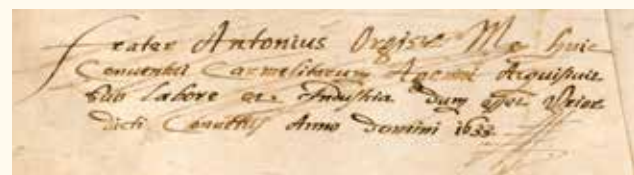 frater Antonius Orgise Me huic
Conventui Carmelitarum Agenni Acquisivit
sub labore et industria dum esset Prior
dicti Conuētus Anno domini 1633